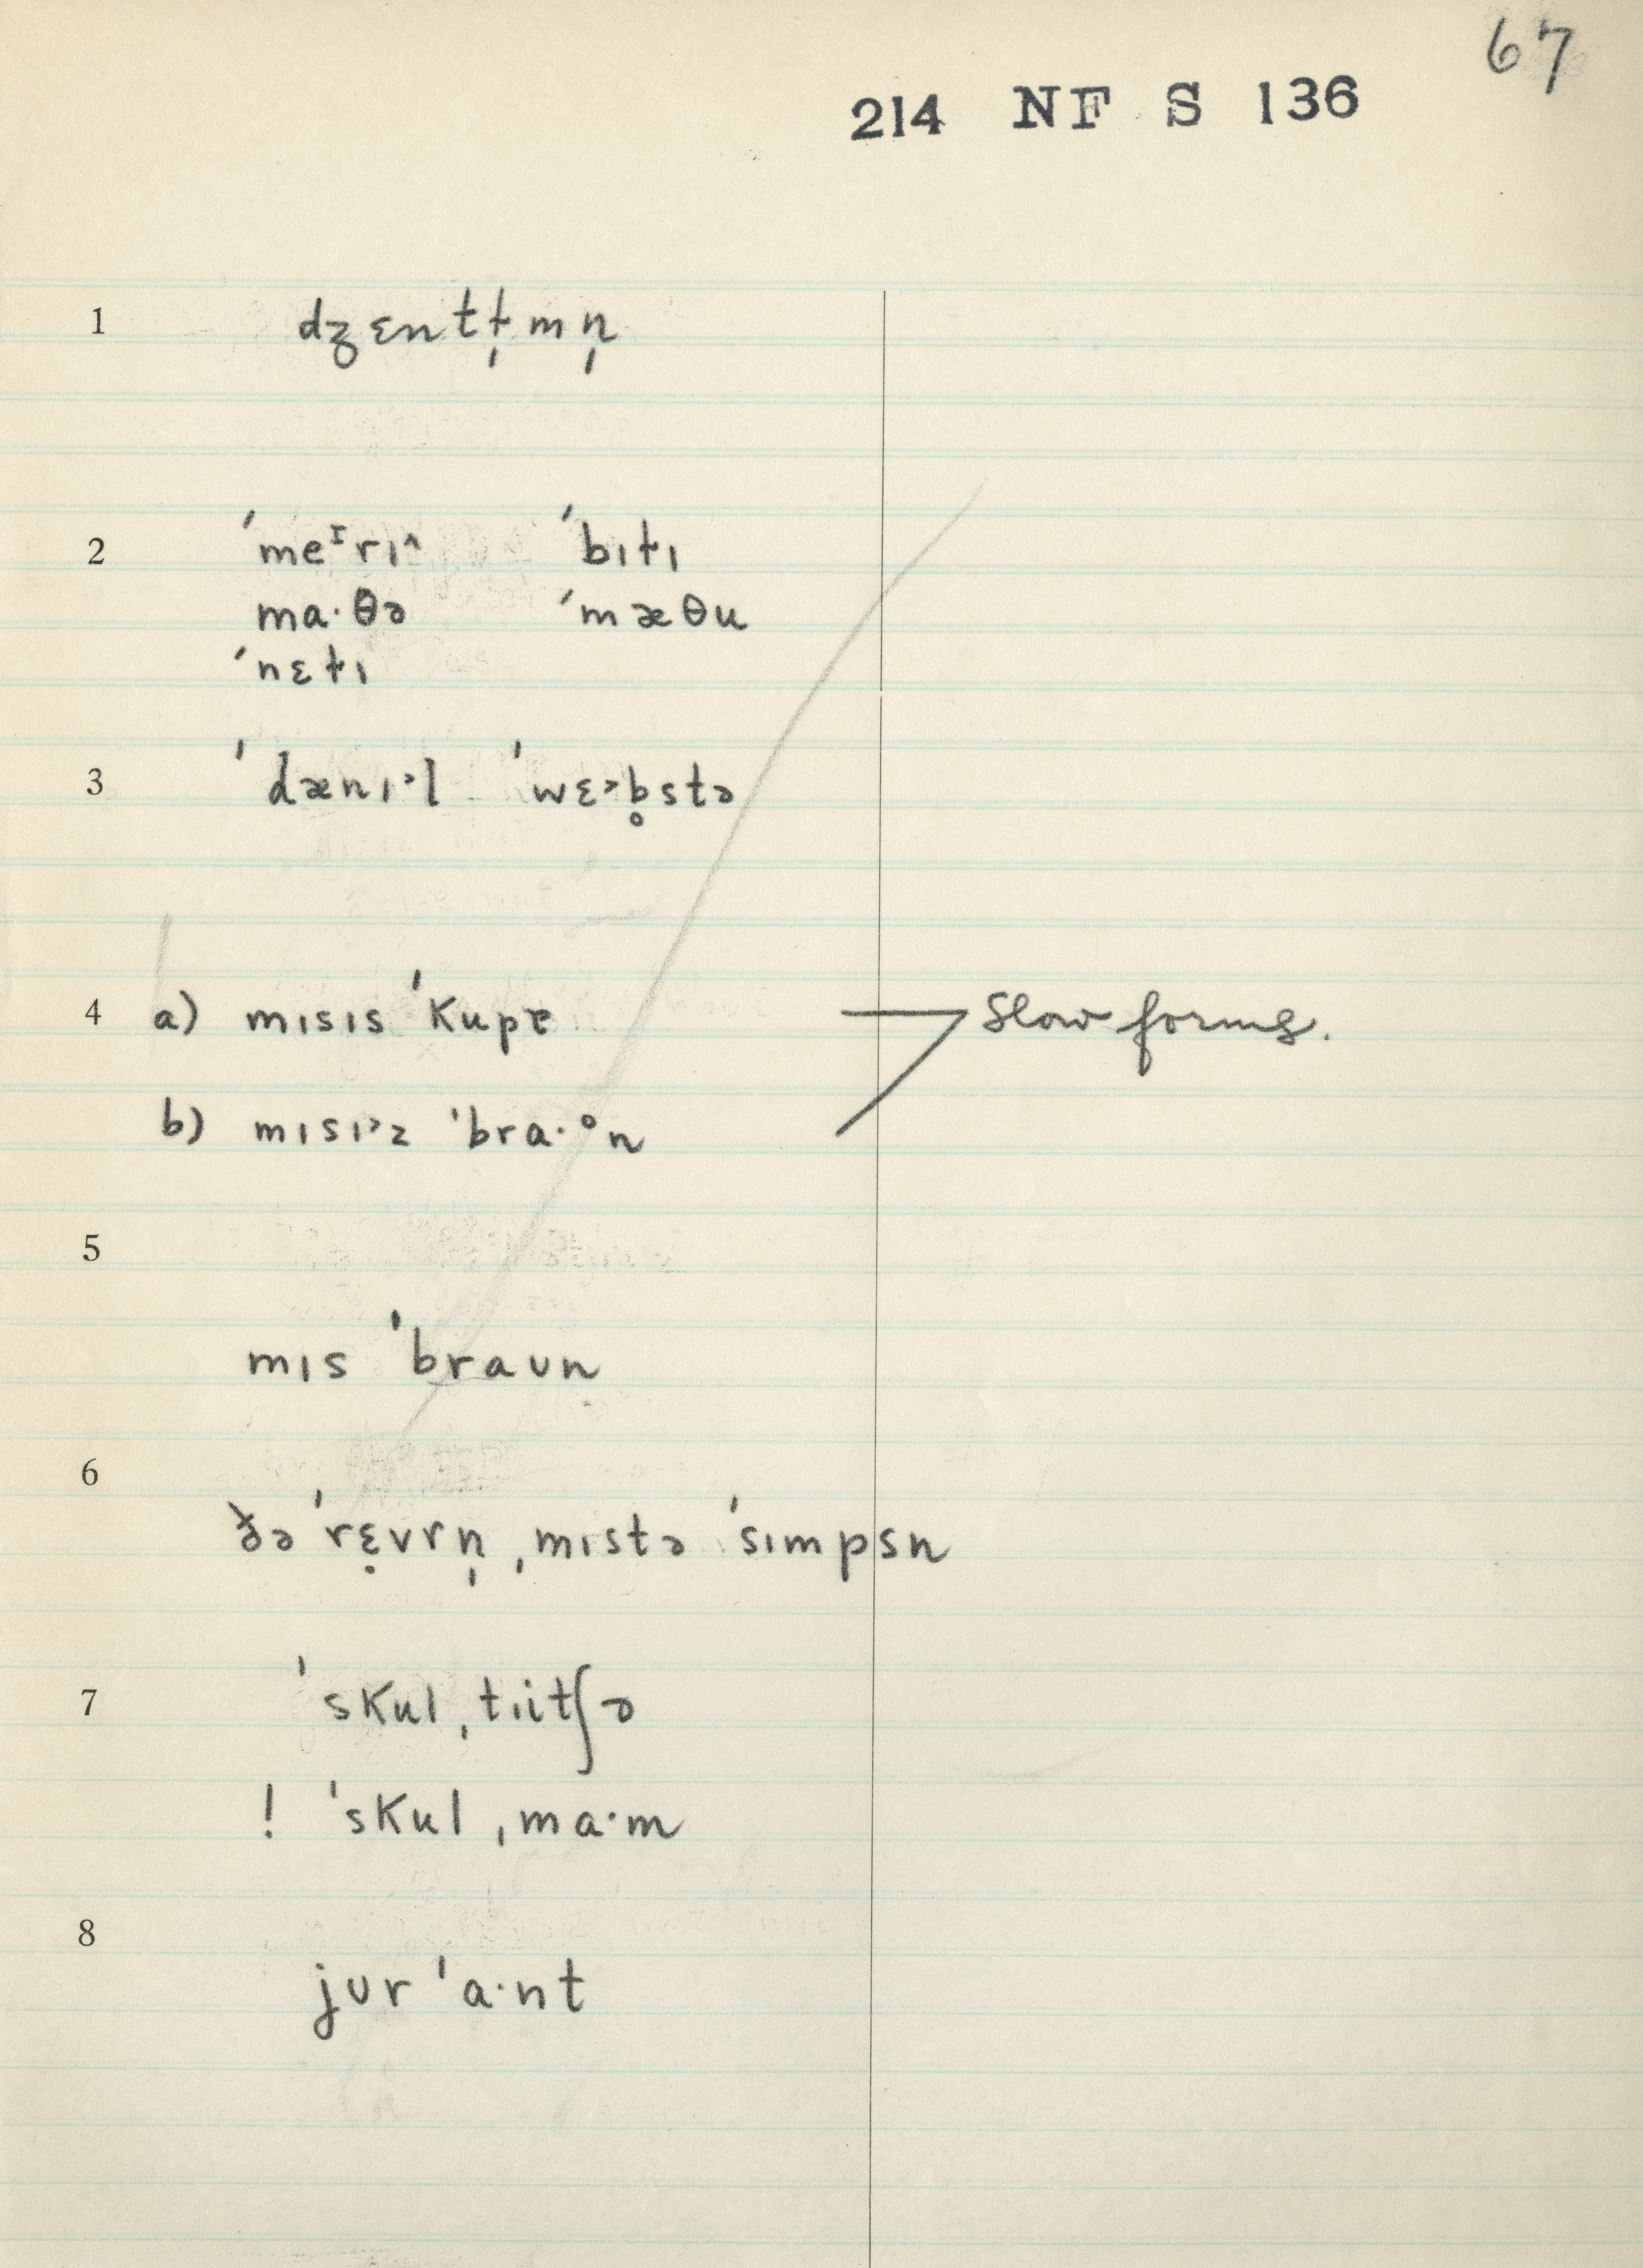 67
214 NF S 136
1 dʒɛntɫ̩mn̩
2 ˈmeᴵrɪ^ ˈbɪɫɪ
ma·θə ˈmæθu
ˈnɛɫɪ
3 ˈdænɪ˃l ˈwɛ˃b̥stə
4 a) mɪsɪs ˈkupɚ Slow forms.
b) mɪsɪ˃z ˈbra·ᵒn
5
mɪs ˈbraʊn
6
ðə ˈrɛ̣vrn̩ ˌmɪstə ˈsɪmpsn
7 ˈskul ˌtɪitʃə
! ˈskul ˌma·m
8
jʊr ˈa·nt